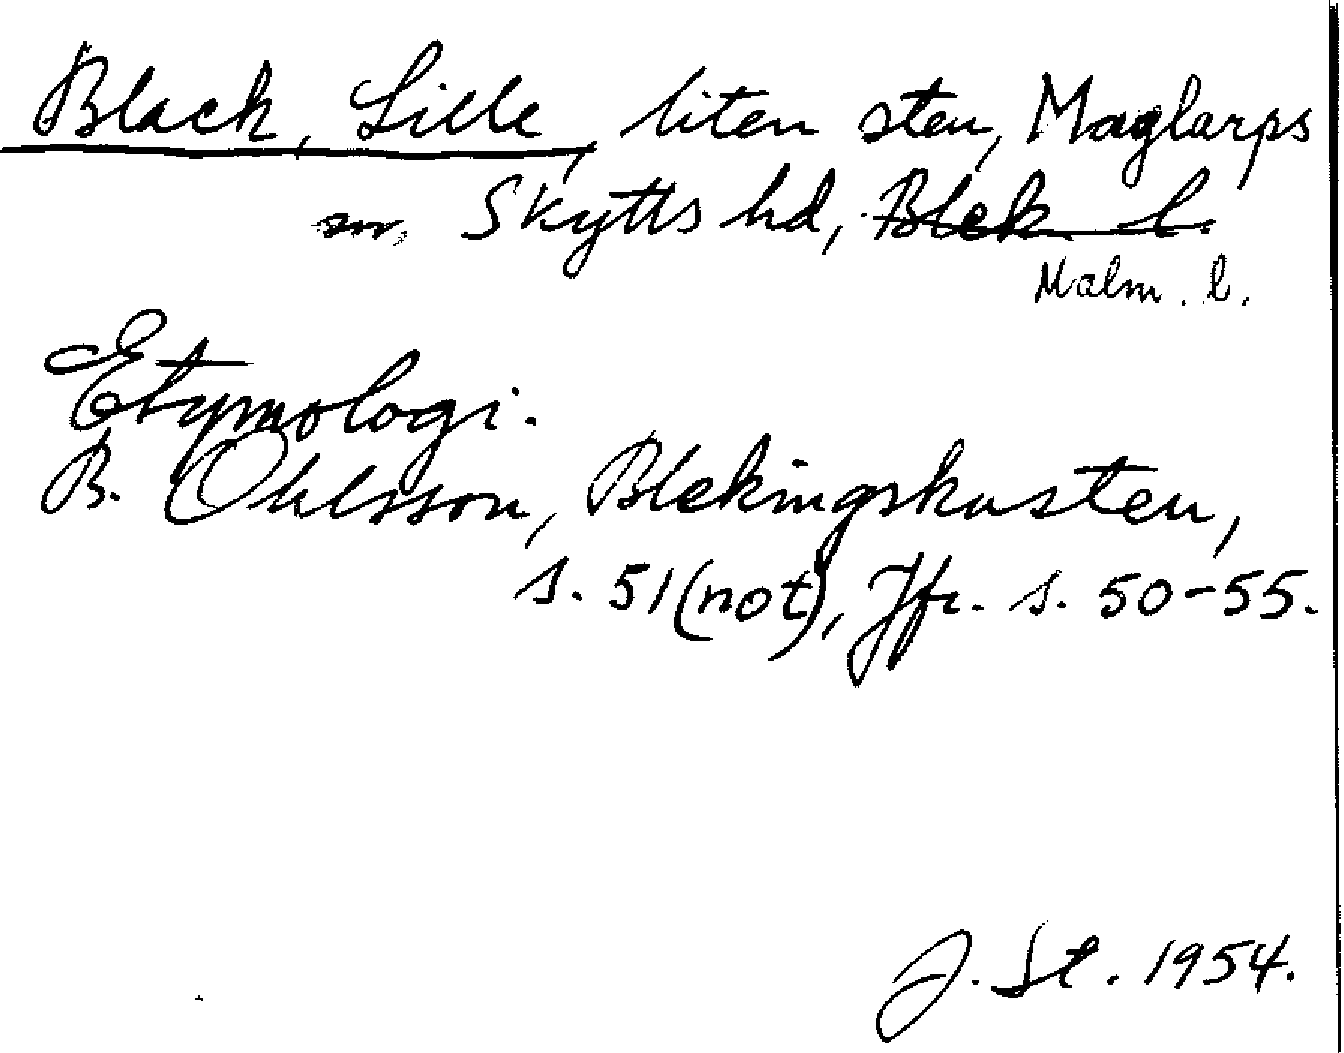 Black, Lille, liten sten, Maglarps
sn, Skytts hd, Blek l.
Malm. l.
Etymologi.
B. Ohlsson, Blekingskusten,
s. 51 (not), Jfr. s. 50-55.
J. St. 1954.